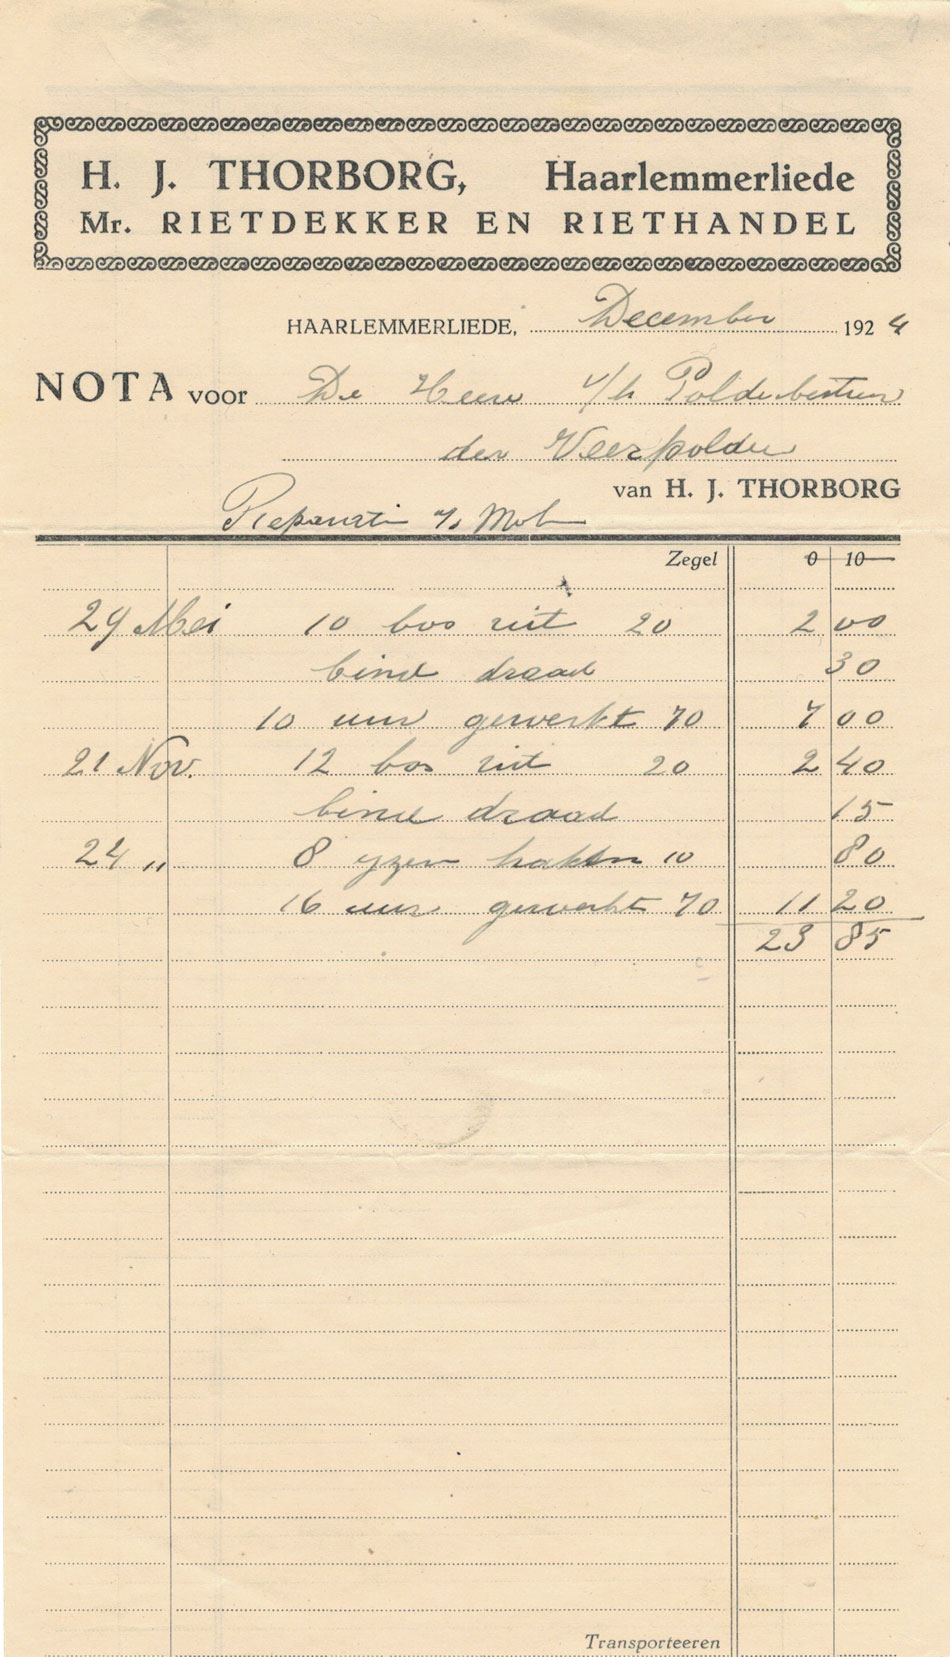 H. J. THORBORG, Haarlemmerliede
Mr. RIETDEKKER EN RIETHANDEL
HAARLEMMERLIEDE, December 1924
NOTA voor De Heere v/h Polderbestuur
der Veerpolder
van H. J. THORBORG
Reparatie a/d Molen
Zegel 0 10
29 Mei 10 bos riet 20 2 00
bind draad 30
10 uur gewerkt 70 7 00
21 Nov. 12 bos riet 20 2 40
bind draad 15
24 „ 8 yzer hakken 10 80
16 uur gewerkt 70 11 20
23 85
Transporteeren